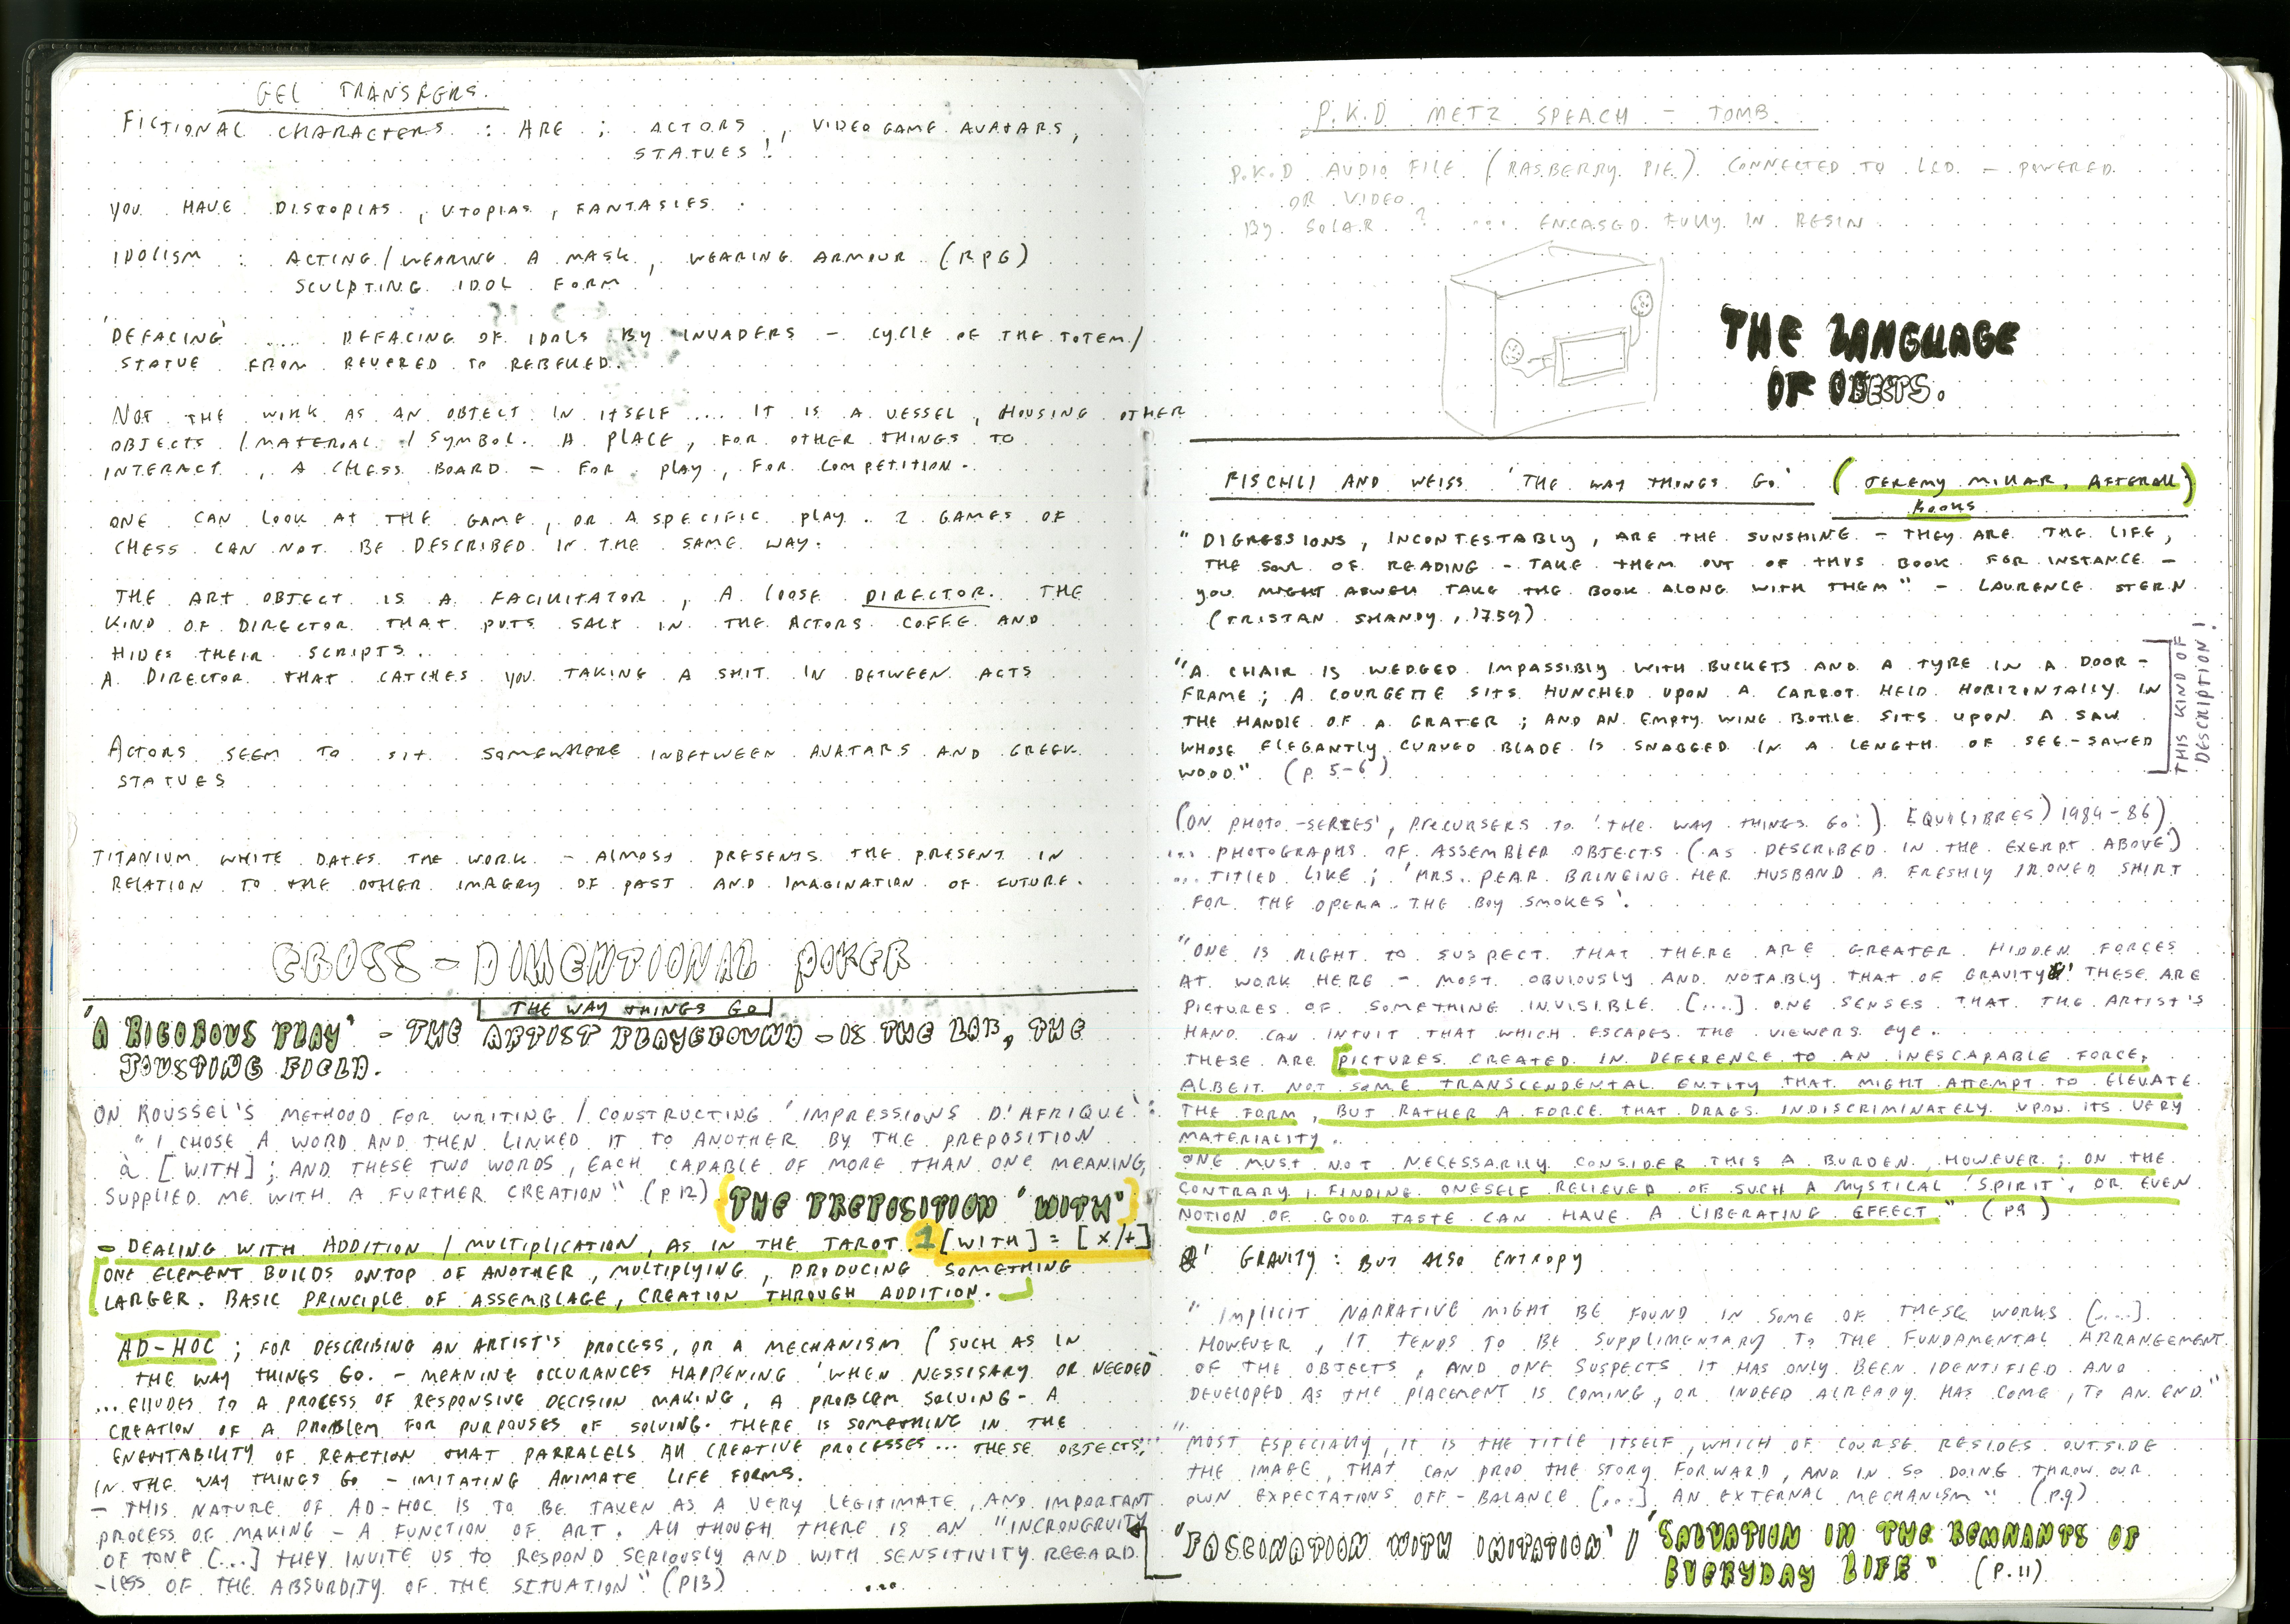 GEL TRANSFERS.
FICTIONAL CHARACTERS : ARE ; ACTORS , VIDEOGAME AVATARS,
STATUES!
YOU HAVE DISTOPIAS , UTOPIAS , FANTASIES .
IDOLISM : ACTING / WEARING A MASK , WEARING ARMOUR (RPG)
SCULPTING IDOL FORM
'DEFACING' .... DEFACING OF IDOLS BY INVADERS - CYCLE OF THE TOTEM /
STATUE FROM REVERED TO REBELLED.
NOT THE WORK AS AN OBJECT IN ITSELF .... IT IS A VESSEL , HOUSING OTHER
OBJECTS / MATERIAL / SYMBOL. A PLACE, FOR OTHER THINGS TO
INTERACT , A CHESS BOARD - FOR PLAY, FOR COMPETITION.
ONE CAN LOOK AT THE GAME, OR A SPECIFIC PLAY. 2 GAMES OF
CHESS CAN NOT BE DESCRIBED IN THE SAME WAY.
THE ART OBJECT IS A FACILITATOR , A LOOSE DIRECTOR. THE
KIND OF DIRECTOR THAT PUTS SALT IN THE ACTORS COFFE AND
HIDES THEIR SCRIPTS..
A DIRECTOR THAT CATCHES YOU TAKING A SHIT IN BETWEEN ACTS
ACTORS SEEM TO SIT SOMEWHERE INBETWEEN AVATARS AND GREEK
STATUES
TITANIUM WHITE DATES THE WORK - ALMOST PRESENTS THE PRESENT IN
RELATION TO THE OTHER IMAGERY OF PAST AND IMAGINATION OF FUTURE.
CROSS-DIMENTIONAL POKER
THE WAY THINGS GO
'A RIGOROUS PLAY' - THE ARTIST PLAYGROUND - IS THE LAB, THE
JOUSTING FIELD.
ON ROUSSEL'S METHOOD FOR WRITING / CONSTRUCTING 'IMPRESSIONS D'AFRIQUE':
"I CHOSE A WORD AND THEN LINKED IT TO ANOTHER BY THE PREPOSITION
à [WITH] ; AND THESE TWO WORDS, EACH CAPABLE OF MORE THAN ONE MEANING,
SUPPLIED ME WITH A FURTHER CREATION" (P.12) (THE PREPOSITION 'WITH')
- DEALING WITH ADDITION / MULTIPLICATION, AS IN THE TAROT. 1 [WITH] = [x/+]
ONE ELEMENT BUILDS ONTOP OF ANOTHER, MULTIPLYING, PRODUCING SOMETHING
LARGER. BASIC PRINCIPLE OF ASSEMBLAGE, CREATION THROUGH ADDITION.
AD-HOC ; FOR DESCRIBING AN ARTIST'S PROCESS, OR A MECHANISM (SUCH AS IN
THE WAY THINGS GO. - MEANING OCCURANCES HAPPENING 'WHEN NESSISARY OR NEEDED'
... ELLUDES TO A PROCESS OF RESPONSIVE DECISION MAKING, A PROBLEM SOLVING - A
CREATION OF A PROBLEM FOR PURPOUSES OF SOLVING. THERE IS SOMETHING IN THE
ENEVITABILITY OF REACTION THAT PARRALELS ALL CREATIVE PROCESSES... THESE OBJECTS,
IN THE WAY THINGS GO - IMITATING ANIMATE LIFE FORMS.
- THIS NATURE OF AD-HOC IS TO BE TAKEN AS A VERY LEGITIMATE, AND IMPORTANT
PROCESS OF MAKING - A FUNCTION OF ART. ALL THOUGH THERE IS AN "INCRONGRUITY
OF TONE [...] THEY INVITE US TO RESPOND SERIOUSLY AND WITH SENSITIVITY REGARD
-LESS OF THE ABSURDITY OF THE SITUATION" (P13) ...
P.K.D METZ SPEACH - TOMB.
P.K.D AUDIO FILE (RASBERRY PIE) CONNECTED TO LCD - POWERED
OR VIDEO.
BY SOLAR ? .... ENCASED FULLY IN RESIN
THE LANGUAGE
OF OBECTS.
FISCHLI AND WEISS 'THE WAY THINGS GO' (JEREMY MILLAR, AFTERALL)
BOOKS
"DIGRESSIONS, INCONTESTABLY, ARE THE SUNSHINE - THEY ARE THE LIFE,
THE SOUL OF READING - TAKE THEM OUT OF THYS BOOK FOR INSTANCE -
YOU MIGHT ASWELL TAKE THE BOOK ALONG WITH THEM" - LAURENCE STERN
(TRISTAN SHANDY, 1759)
"A CHAIR IS WEDGED IMPASSIBLY WITH BUCKETS AND A TYRE IN A DOOR-
FRAME; A COURGETTE SITS HUNCHED UPON A CARROT HELD HORIZONTALLY IN
THE HANDLE OF A GRATER ; AND AN EMPTY WINE BOTTLE SITS UPON A SAW
WHOSE ELEGANTLY CURVED BLADE IS SNAGGED IN A LENGTH OF SEE-SAWED
WOOD." (P. 5-6)
THIS KIND OF
DESCRIPTION!
(ON PHOTO-SERIES', PRECURSERS TO 'THE WAY THINGS GO'.) EQUILIBRES) 1984-86)
... PHOTOGRAPHS OF ASSEMBLED OBJECTS (AS DESCRIBED IN THE EXERPT ABOVE)
... TITLED LIKE ; 'MRS. PEAR BRINGING HER HUSBAND A FRESHLY IRONED SHIRT
FOR THE OPERA. THE BOY SMOKES'.
"ONE IS RIGHT TO SUSPECT THAT THERE ARE GREATER HIDDEN FORCES
AT WORK HERE - MOST OBVIOUSLY AND NOTABLY THAT OF GRAVITY THESE ARE
PICTURES OF SOMETHING INVISIBLE [....] ONE SENSES THAT THE ARTIST'S
HAND CAN INTUIT THAT WHICH ESCAPES THE VIEWERS EYE.
THESE ARE [PICTURES CREATED IN DEFERENCE TO AN INESCAPABLE FORCE,
ALBEIT NOT SOME TRANSCENDENTAL ENTITY THAT MIGHT ATTEMPT TO ELEVATE
THE FORM, BUT RATHER A FORCE THAT DRAGS INDISCRIMINATELY UPON ITS VERY
MATERIALITY.
ONE MUST NOT NECESSARILY CONSIDER THIS A BURDEN, HOWEVER ; ON THE
CONTRARY, FINDING ONESELF RELIEVED OF SUCH A MYSTICAL 'SPIRIT', OR EVEN
NOTION OF GOOD TASTE CAN HAVE A LIBERATING EFFECT" (P8)
GRAVITY : BUT ALSO ENTROPY
"IMPLICIT NARRATIVE MIGHT BE FOUND IN SOME OF THESE WORKS [....]
HOWEVER, IT TENDS TO BE SUPPLIMENTARY TO THE FUNDAMENTAL ARRANGEMENT
OF THE OBJECTS, AND ONE SUSPECTS IT HAS ONLY BEEN IDENTIFIED AND
DEVELOPED AS THE PLACEMENT IS COMING, OR INDEED ALREADY HAS COME, TO AN END."
"MOST ESPECIALLY, IT IS THE TITLE ITSELF, WHICH OF COURSE RESIDES OUTSIDE
THE IMAGE, THAT CAN PROD THE STORY FORWARD, AND IN SO DOING THROW OUR
OWN EXPECTATIONS OFF-BALANCE [...] AN EXTERNAL MECHANISM" (P.9)
'FASCINATION WITH IMITATION' / 'SALVATION IN THE REMNANTS OF
EVERYDAY LIFE' (P.11)